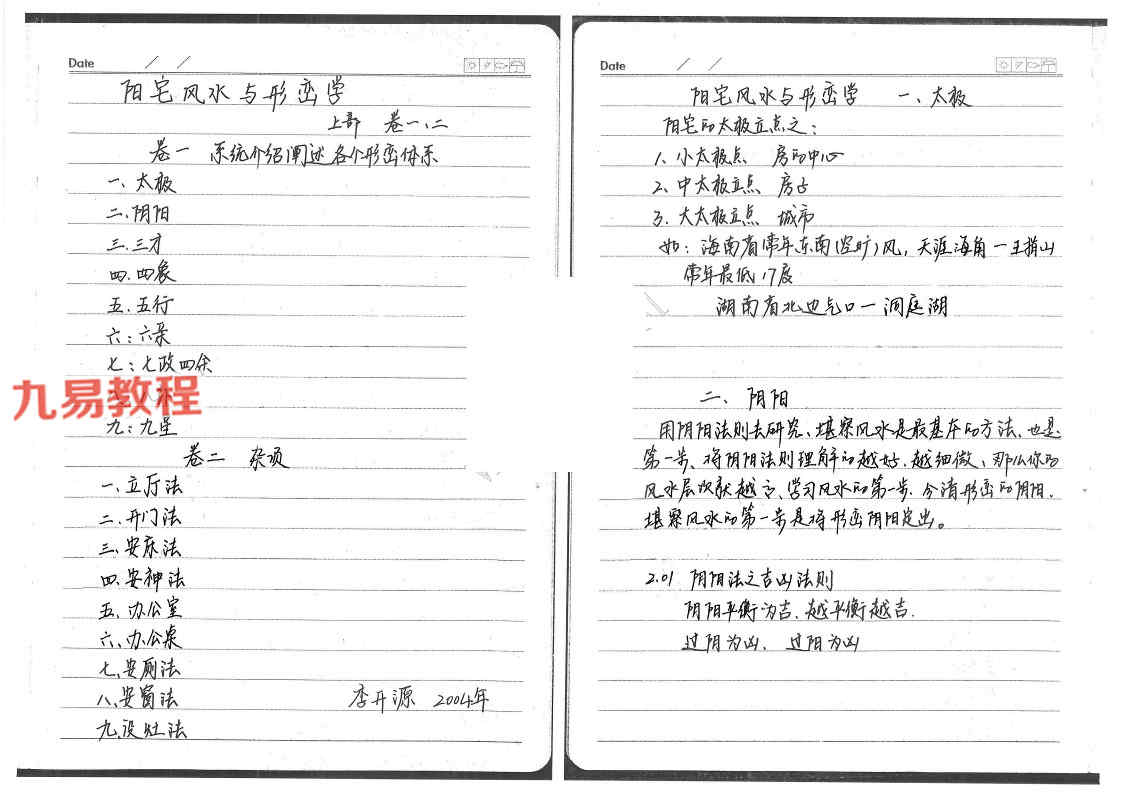 Date / /
阳宅风水与形峦学
上部 卷一、二
卷一 系统介绍阐述各个形峦体系
一、太极
二、阴阳
三、三才
四、四象
五、五行
六:六
七:七政四余
九易教程
九:九星
卷二 杂项
一、立厅法
二、开门法
三、安床法
四、安神法
五、办公室
六、办公桌
七、安厕法
八、安窗法
九、设灶法
李开源 2004年
Date / /
阳宅风水与形峦学 一、太极
阳宅的太极立点之:
1、小太极点 房的中心
2、中太极立点 房占
3、大太极立点 城市
如:海南省常年东南(空旷)风,天涯海角一王指山
常年最低17度
湖南省北边气口一洞庭湖
二、阴阳
用阴阳法则去研究、堪察风水是最基本的方法、也是
第一步、将阴阳法则理解的越好、越细微、那么你的
风水层次就越高、学习风水的第一步、分清形峦的阴阳、
堪察风水的第一步是将形峦阴阳定出。
2.01 阴阳法之吉凶法则
阴阳平衡为吉、越平衡越吉.
过阴为凶、过阳为凶